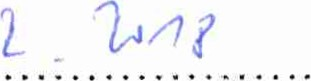 2. 2018